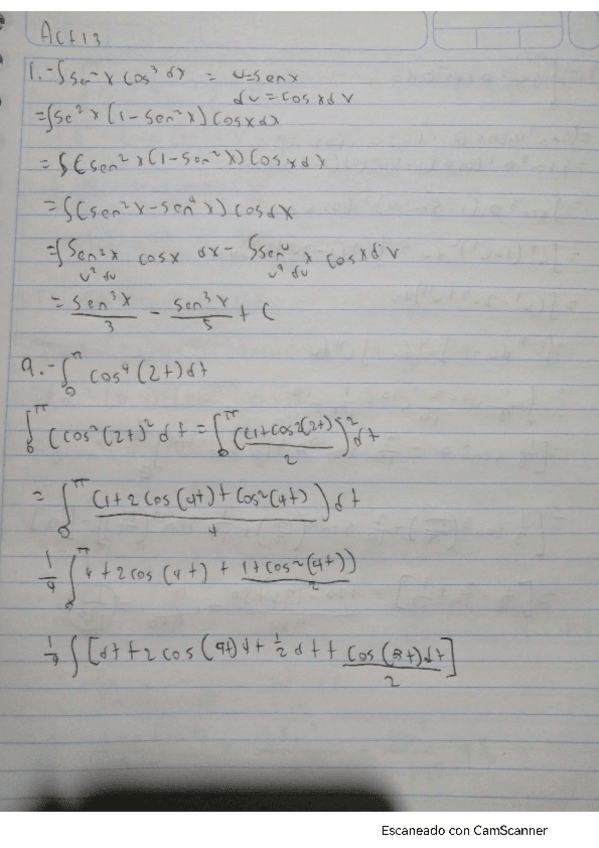 Act 13
1.- ∫ sen² x cos³ dx = u = sen x
du = cos x dx
= ∫ se² x (1 - sen² x) cos x dx
= ∫ ( sen² x (1 - sen² x) cos x dx
= ∫ (sen² x - sen⁴ x) cos dx
= ∫ sen² x cos x dx - ∫ sen⁴ x cos x dx
u² du u⁴ du
= sen³ x / 3 - sen³ x / 5 + C
9.- ∫₀^π cos⁴ (2t) dt
∫₀^π (cos² (2t)² dt = ∫₀^π ((1 + cos 2(2t)) / 2)² dt
= ∫₀^π ((1 + 2 cos (4t) + cos² (4t)) / 4) dt
1/4 ∫₀^π 1 + 2 cos (4t) + (1 + cos² (4t)) / 2
∫ [dt + 2 cos (4t) dt + 1/2 dt + cos (8t) dt / 2]
Escaneado con CamScanner